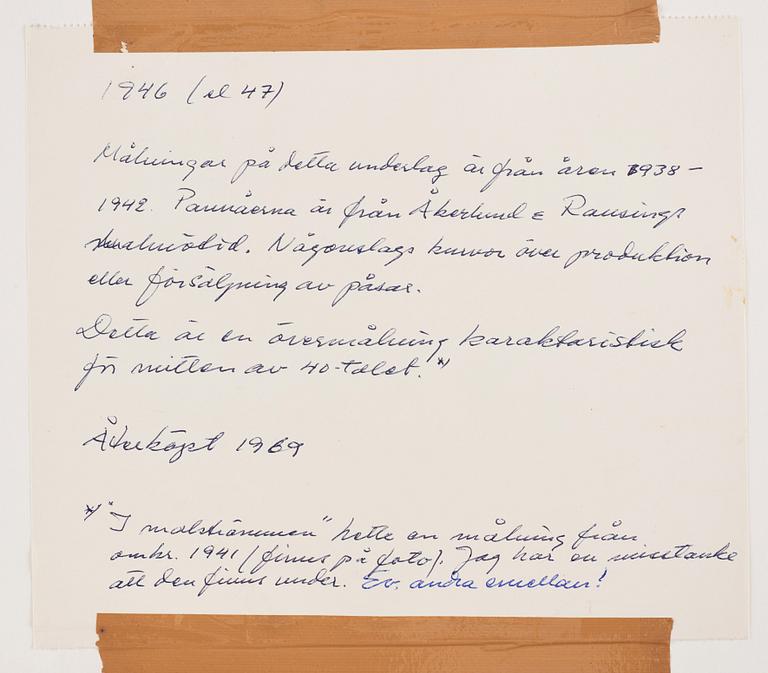 1946 (el 47)
Målningar på detta underlag är från åren 1938-
1942. Pannåerna är från Åkerlund & Rausings
Malmötid. Någonslags kurvor över produktion
eller försäljning av påsar.
Detta är en övermålning karaktaristisk
för mitten av 40-talet. *)
Återköpt 1969
*) "I malströmmen" hette en målning från
omkr. 1941 (finns på foto). Jag har en misstanke
att den finns under. Ev. andra emellan!